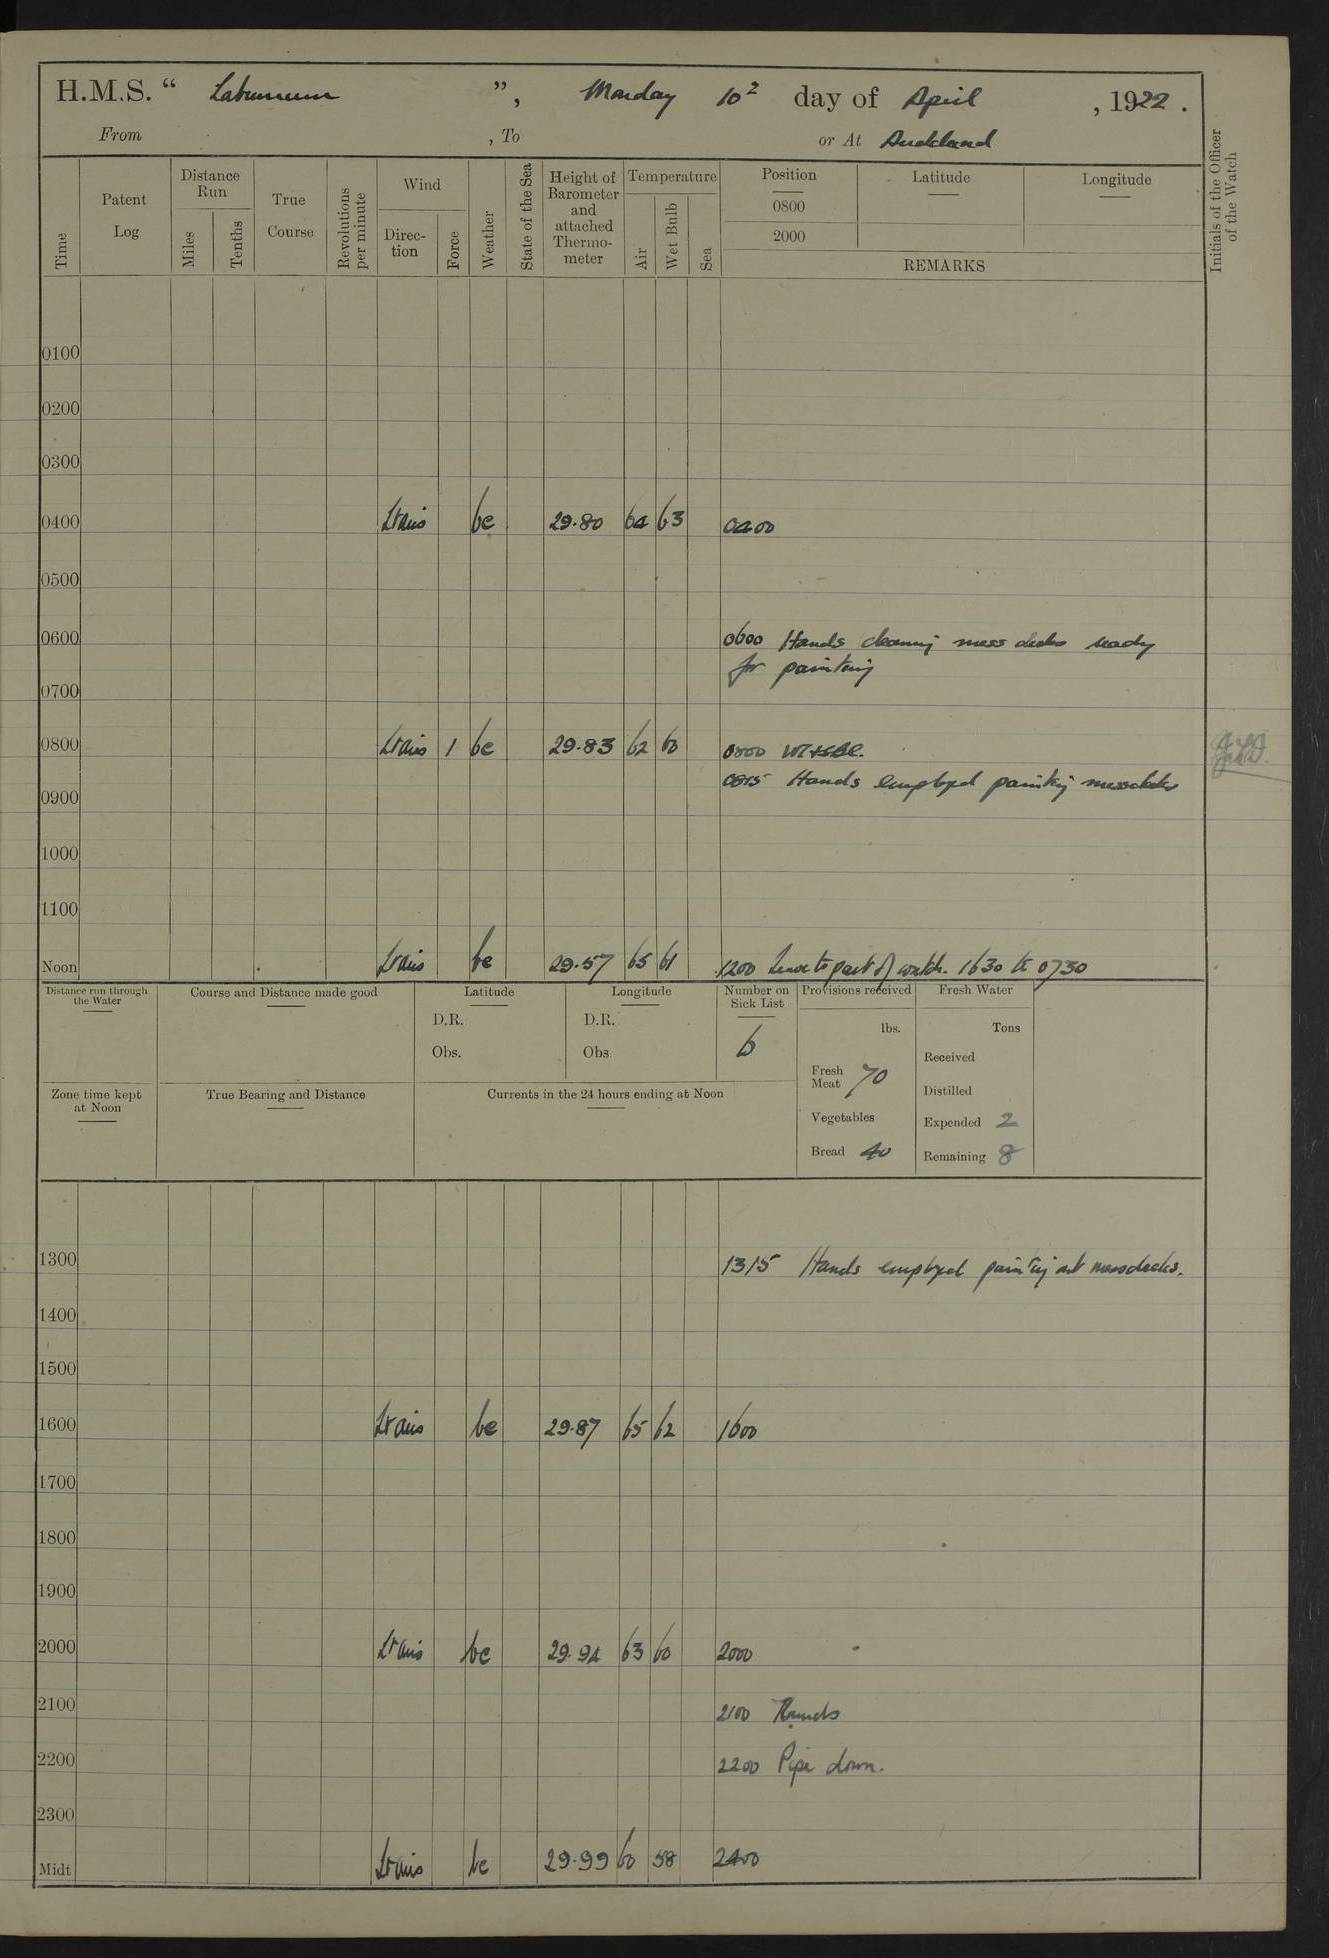 H.M.S. “ Laburnum ”, Monday 10th day of April , 1922 .
From , To or At Auckland
Time
Patent Log
Distance Run
Miles
Tenths
True Course
Revolutions per minute
Wind
Direc-tion
Force
Weather
State of the Sea
Height of Barometer and attached Thermo-meter
Temperature
Air
Wet Bulb
Sea
Position
0800
2000
Latitude
Longitude
REMARKS
Initials of the Officer of the Watch
0100
0200
0300
0400 Lt airs bc 29.80 64 63 0400
0500
0600 0600 Hands cleaning mess decks ready
for painting
0700
0800 Lt airs 1 bc 29.83 62 60 0800
0815 Hands employed painting messdecks
0900
1000
1100
Noon Lt airs bc 29.57 65 61 1200 Leave to part of watch. 1630 to 0730
Distance run through the Water
Course and Distance made good
Latitude
D.R.
Obs.
Longitude
D.R.
Obs
Number on Sick List
6
Provisions received
lbs.
Fresh Meat 70
Vegetables
Bread 40
Fresh Water
Tons
Received
Distilled
Expended 2
Remaining 8
Zone time kept at Noon
True Bearing and Distance
Currents in the 24 hours ending at Noon
1300 1315 Hands employed painting out messdecks.
1400
1500
1600 Lt airs bc 29.87 65 62 1600
1700
1800
1900
2000 Lt airs bc 29.94 63 60 2000
2100 2100 Rounds
2200 2200 Pipe down.
2300
Midt Lt airs bc 29.99 60 58 2400